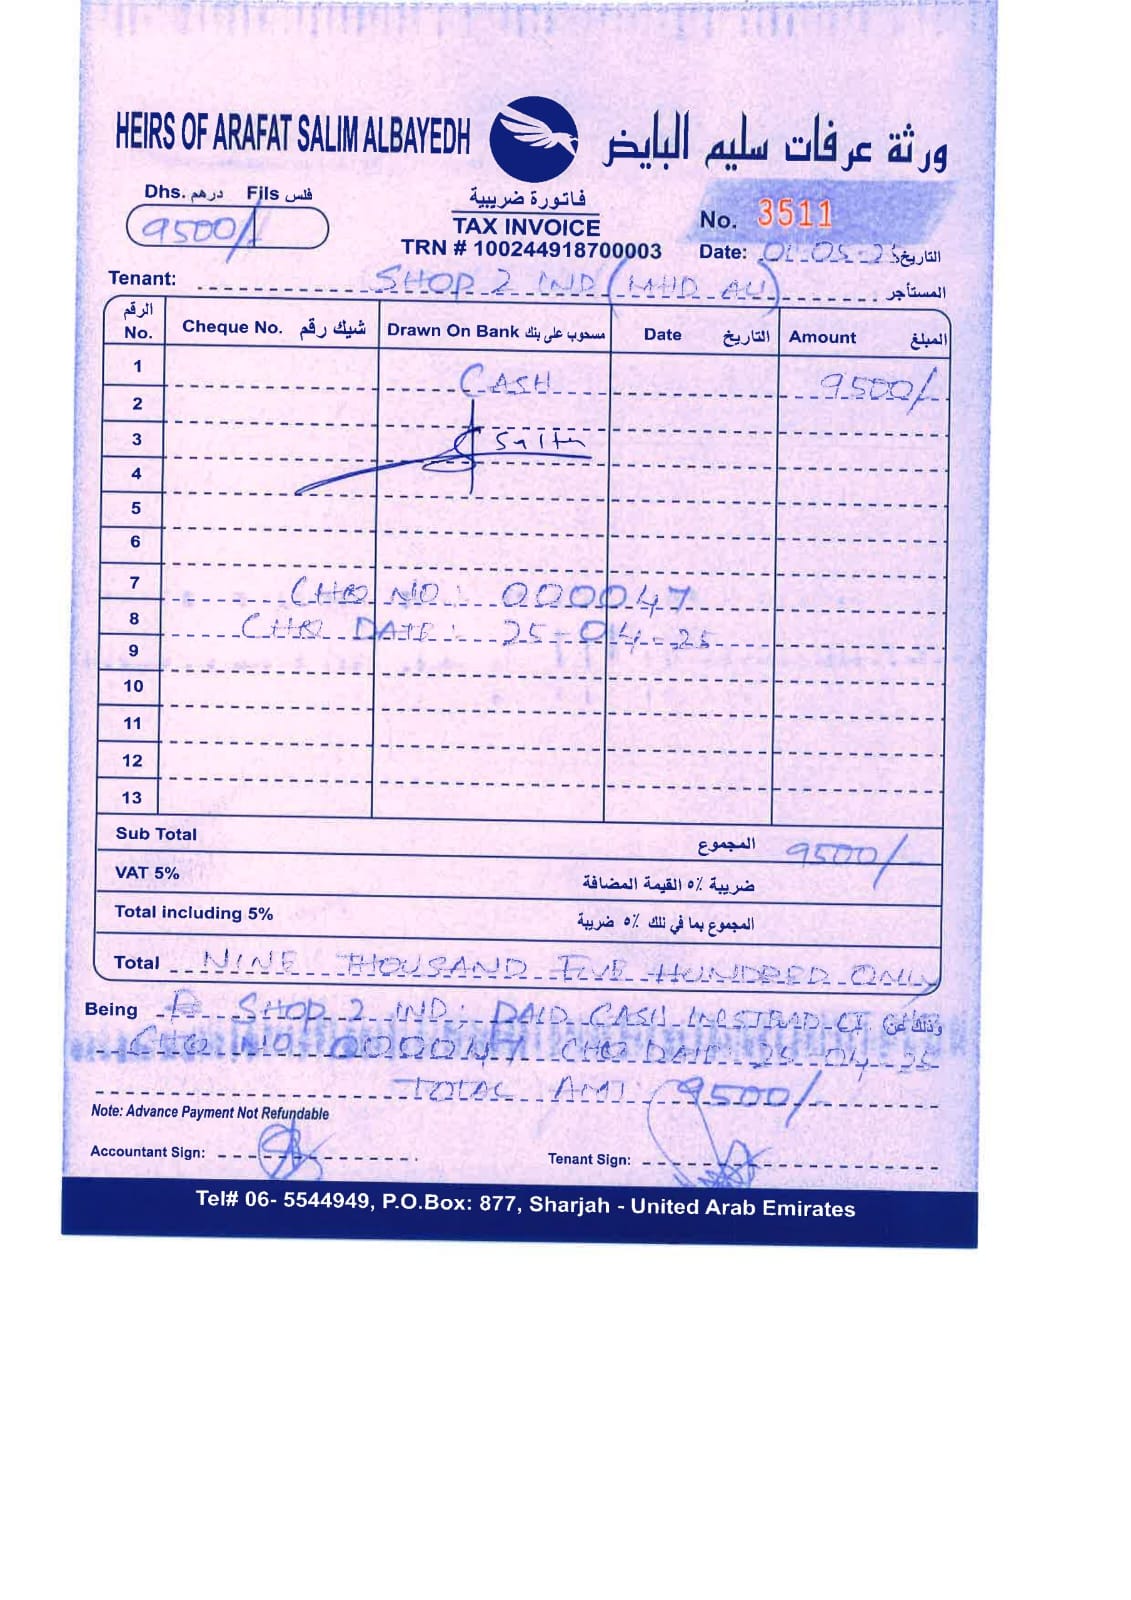 HEIRS OF ARAFAT SALIM ALBAYEDH ورثة عرفات سليم البايض
Dhs. درهم Fils فلس
9500/-
فاتورة ضريبية
TAX INVOICE
TRN # 100244918700003
No. 3511
Date: 01-05-25 التاريخ
Tenant: SHOP 2 IND (MHD ALI) المستأجر
الرقم No. Cheque No. شيك رقم Drawn On Bank مسحوب على بنك Date التاريخ Amount المبلغ
1 CASH 9500/-
2
3
4
5
6
7 CHQ NO: 000047
8 CHQ DATE: 25-04-25
9
10
11
12
13
Sub Total المجموع 9500/-
VAT 5% ضريبة ٥٪ القيمة المضافة
Total including 5% المجموع بما في ذلك ٥٪ ضريبة
Total NINE THOUSAND FIVE HUNDRED ONLY
Being SHOP 2 IND: PAID CASH INSTEAD OF وذلك عن
CHQ NO 000047 CHQ DATE 25-04-25
TOTAL AMT: 9500/-
Note: Advance Payment Not Refundable
Accountant Sign: Tenant Sign:
Tel# 06- 5544949, P.O.Box: 877, Sharjah - United Arab Emirates